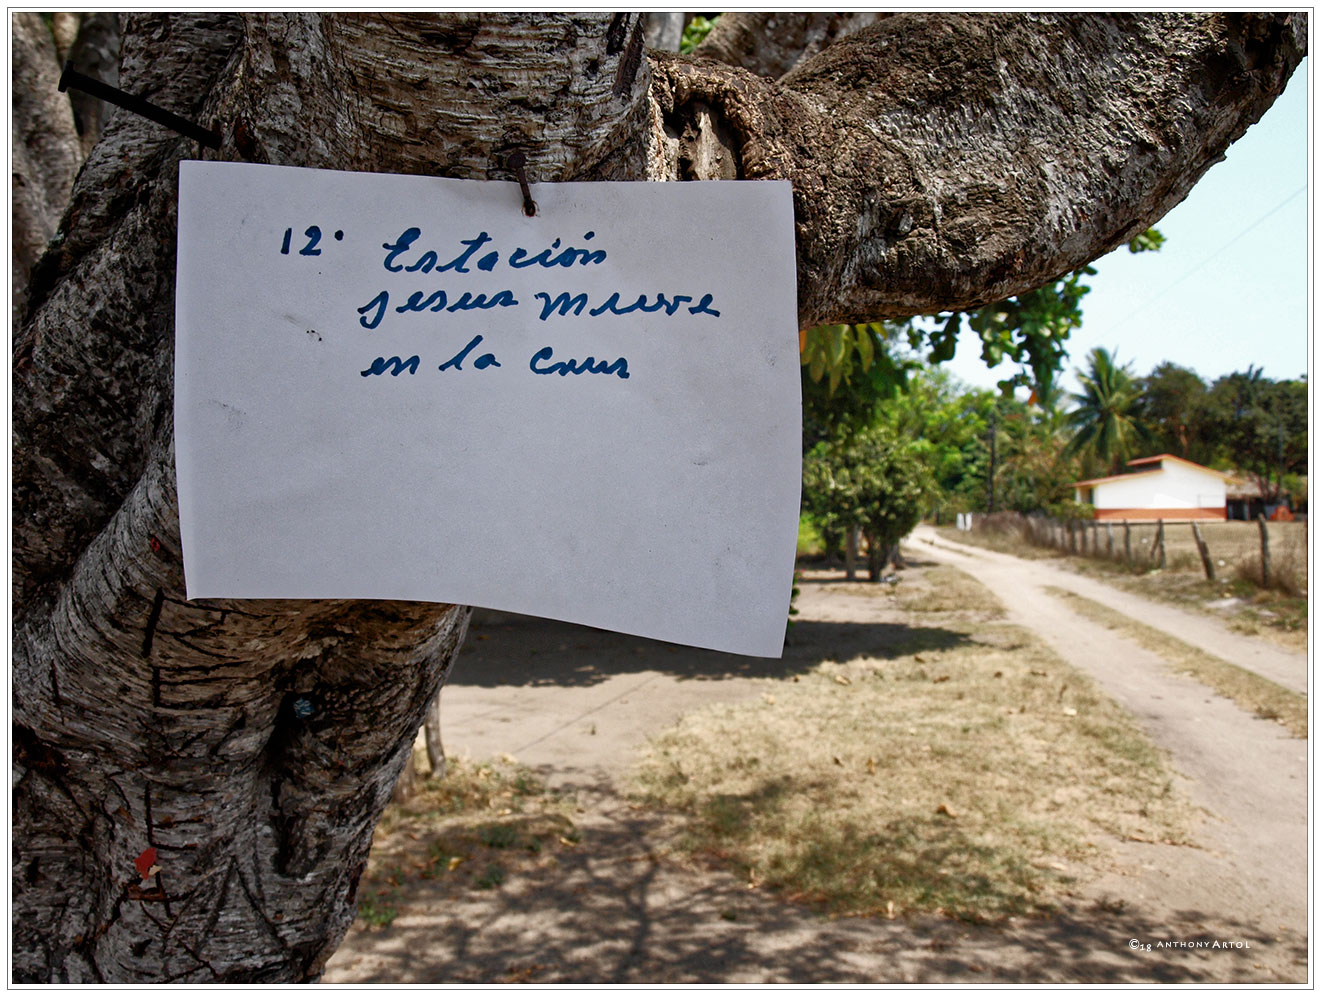 12. Estación
Jesus muere
en la Cruz
©18 ANTHONY ARTOL